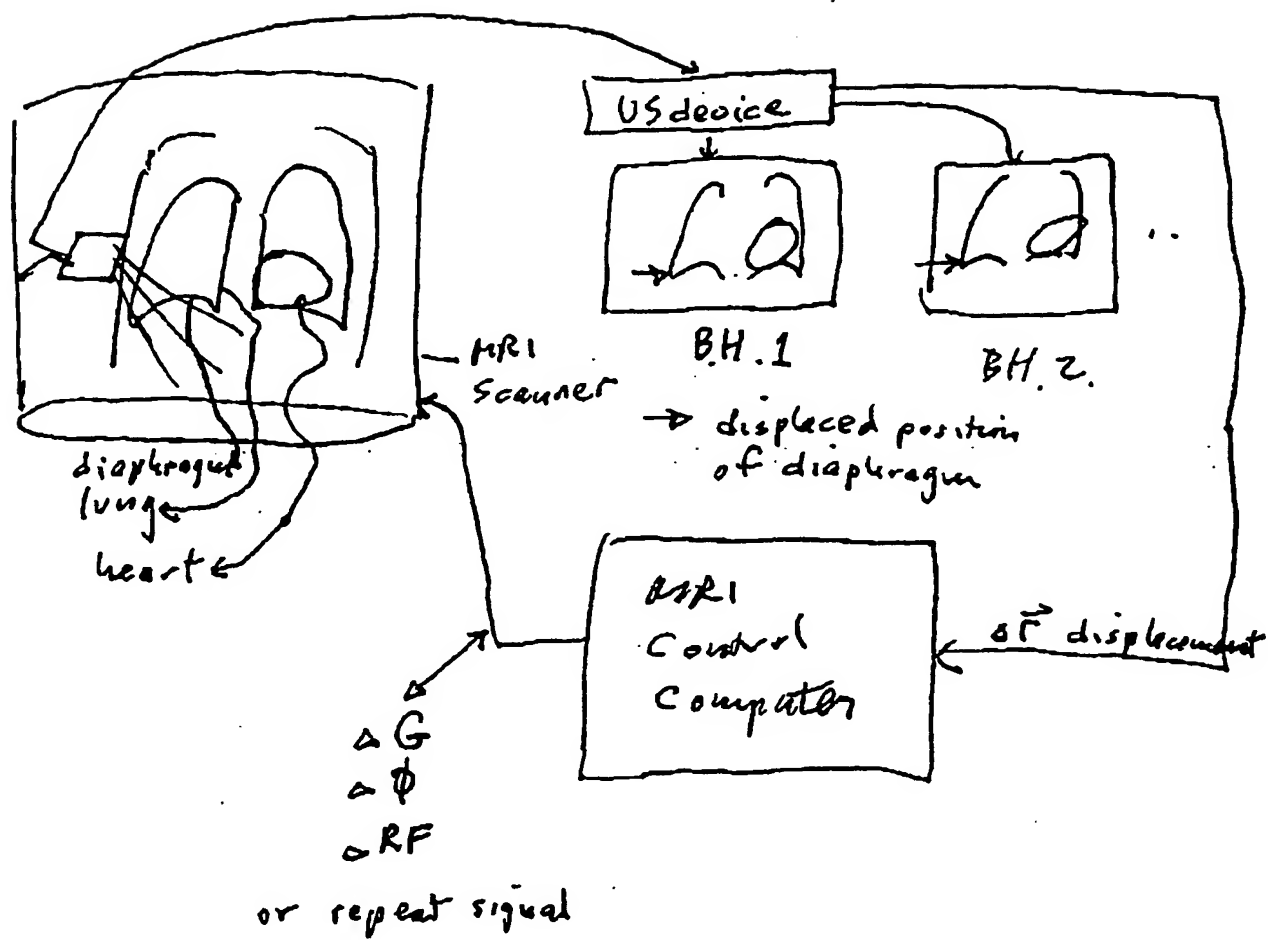 US device
B.H. 1
B.H. 2.
..
MRI
Scanner
→ displaced position
of diaphragm
diaphragm
lung
heart
MRI
Control
Computer
Δr⃗ displacement
Δ G
Δ Φ
Δ RF
or repeat signal